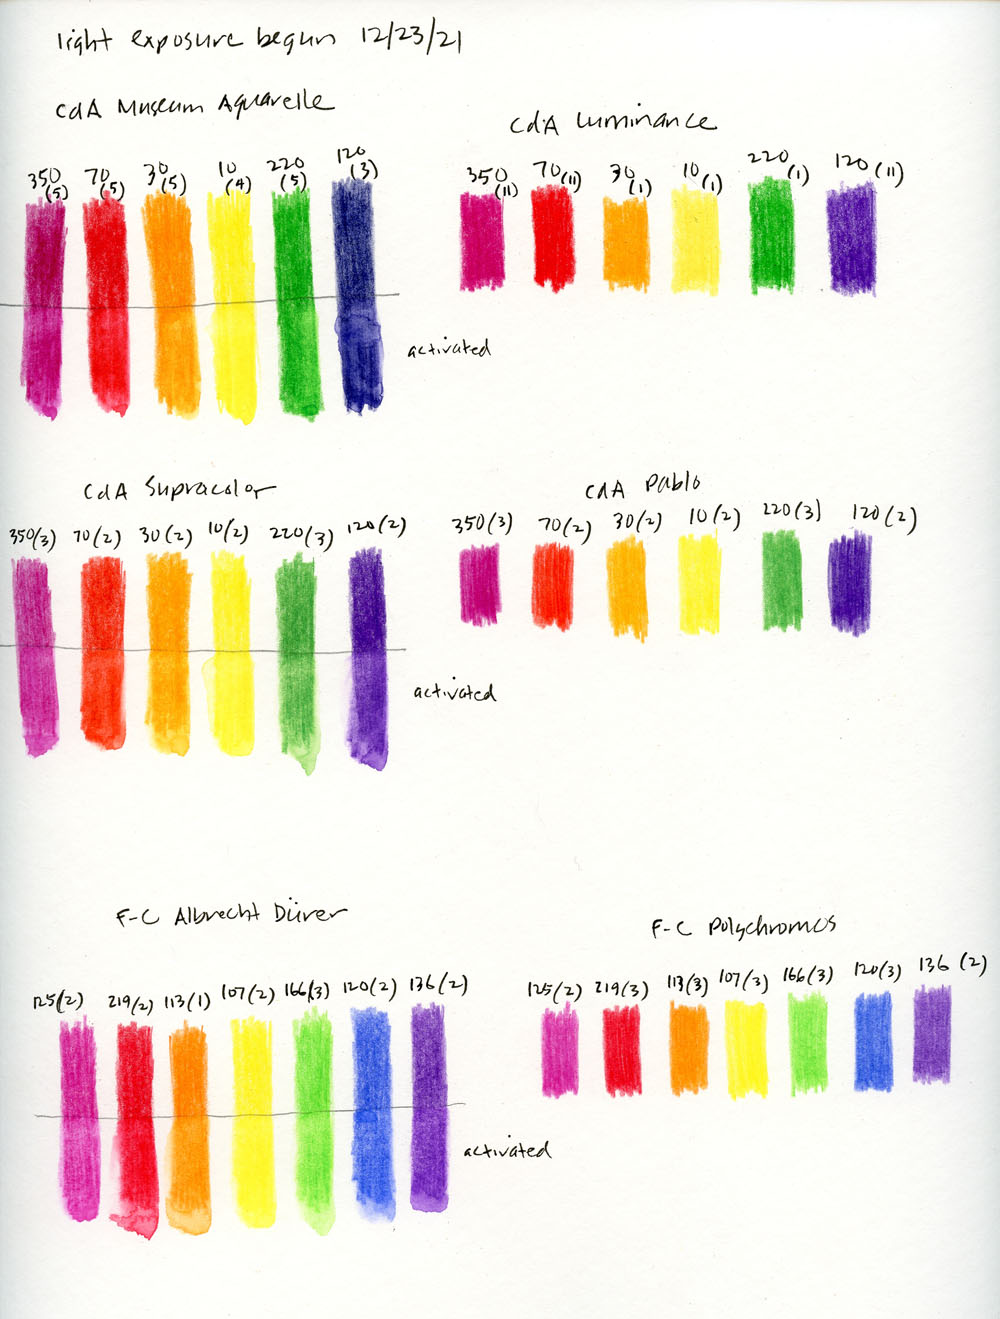 light exposure begun 12/23/21
CdA Museum Aquarelle
350 (5) 70 (5) 30 (5) 10 (4) 220 (5) 120 (3)
activated
CdA Luminance
350 (11) 70 (11) 30 (1) 10 (1) 220 (1) 120 (11)
CdA Supracolor
350(3) 70(2) 30(2) 10(2) 220(3) 120(2)
activated
CdA Pablo
350(3) 70(2) 30(2) 10(2) 220(3) 120(2)
F-C Albrecht Dürer
125(2) 219(2) 113(1) 107(2) 166(3) 120(2) 136(2)
activated
F-C Polychromos
125(2) 219(3) 113(3) 107(3) 166(3) 120(3) 136 (2)